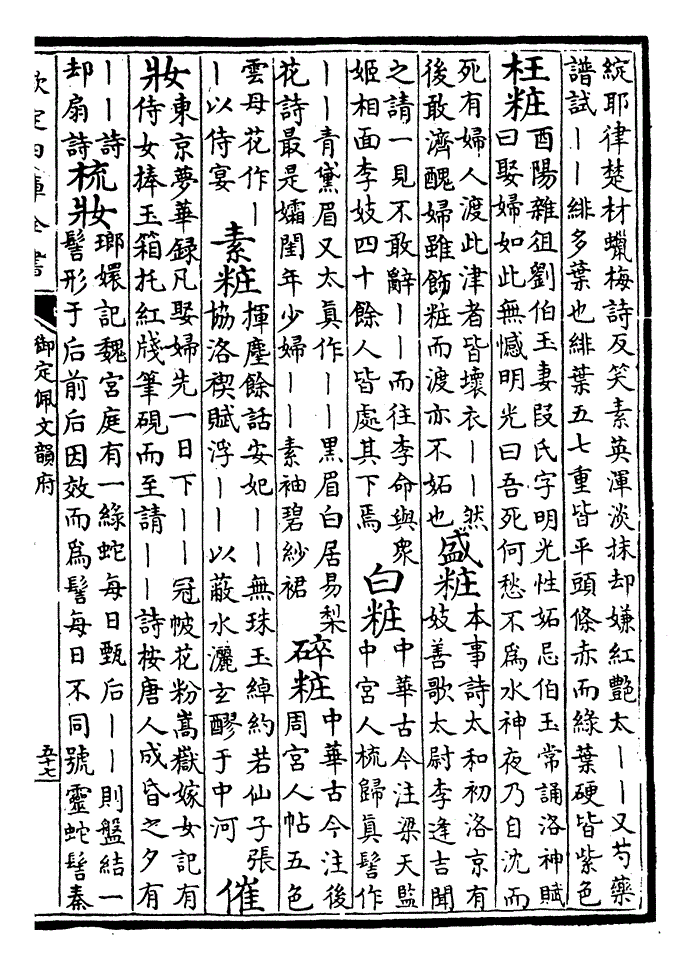 綻耶律楚材蠟梅詩反笑素英渾淡抹却嫌紅艷太丨丨又芍藥
譜試丨丨緋多葉也緋葉五七重皆平頭條赤而綠葉硬皆紫色
枉粧
酉陽雜俎劉伯玉妻叚氏字明光性妬忌伯玉常誦洛神賦
曰娶婦如此無憾明光曰吾死何愁不爲水神夜乃自沈而
死有婦人渡此津者皆壞衣丨丨然
後敢濟醜婦雖飾粧而渡亦不妬也
盛粧
本事詩太和初洛京有
妓善歌太尉李逢吉聞
之請一見不敢辭丨丨而往李命與衆
姬相面李妓四十餘人皆處其下焉
白粧
中華古今注梁天監
中宮人梳歸眞髻作
丨丨青黛眉又太眞作丨丨黑眉白居易梨
花詩最是孀閨年少婦丨丨素袖碧紗裙
碎粧
中華古今注後
周宮人帖五色
雲母花作丨
丨以侍宴
素粧
揮麈餘話安妃丨丨無珠玉綽約若仙子張
協洛禊賦浮丨丨以蔽水灑玄醪于中河
催
妝
東京夢華録凡娶婦先一日下丨丨冠帔花粉嵩嶽嫁女記有
侍女捧玉箱托紅牋筆硯而至請丨丨詩桉唐人成昏之夕有
丨丨詩
却扇詩
梳妝
瑯嬛記魏宮庭有一綠蛇每日甄后丨丨則盤結一
髻形于后前后因效而爲髻每日不同號靈蛇髻秦
欽定四庫全書
御定佩文韻府
五十七